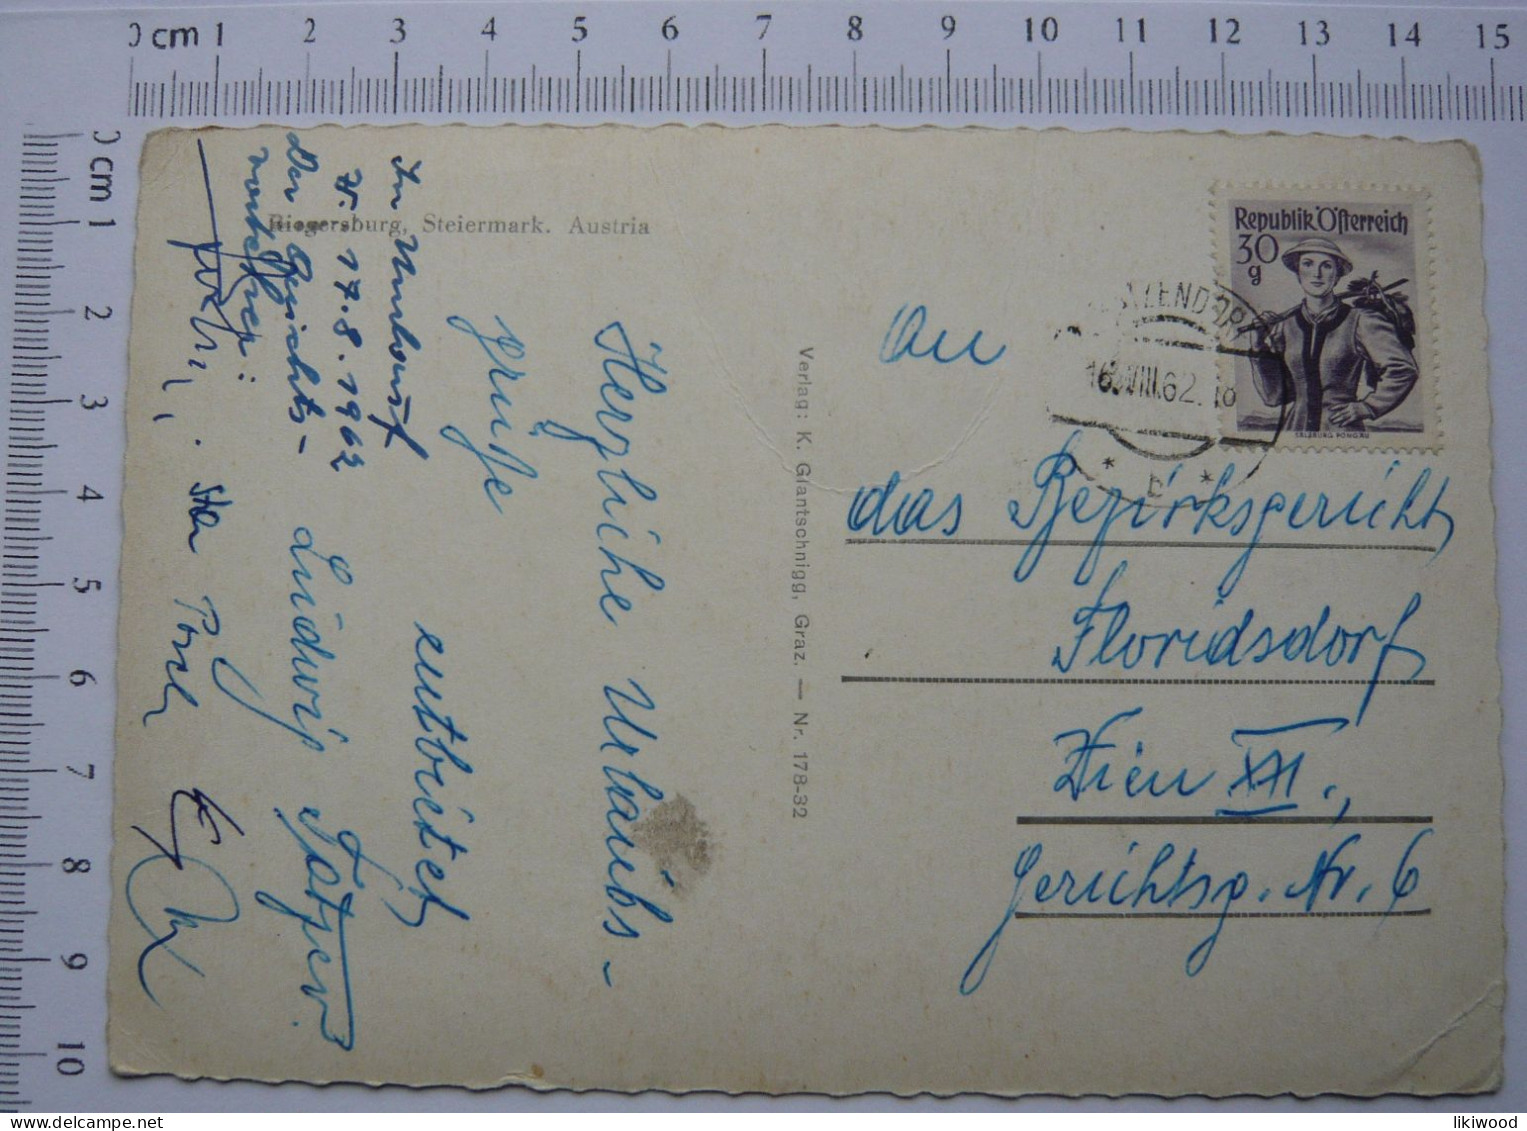 0 cm 1 2 3 4 5 6 7 8 9 10 11 12 13 14 15
0 cm 1 2 3 4 5 6 7 8 9 10
Riegersburg, Steiermark. Austria
Herzliche Urlaubs-
grüße
entbietet
Ludwig
In Umlauf
17.8.1962
Der Gerichts-
vorsteher:
Verlag: K. Glantschnigg, Graz. — Nr. 178-32
Republik Österreich
30
g
SALZBURG PONGAU
16.VIII.62.18
* b *
An
das Bezirksgericht
Floridsdorf
Wien XXI.,
Gerichtsg. Nr. 6
likiwood